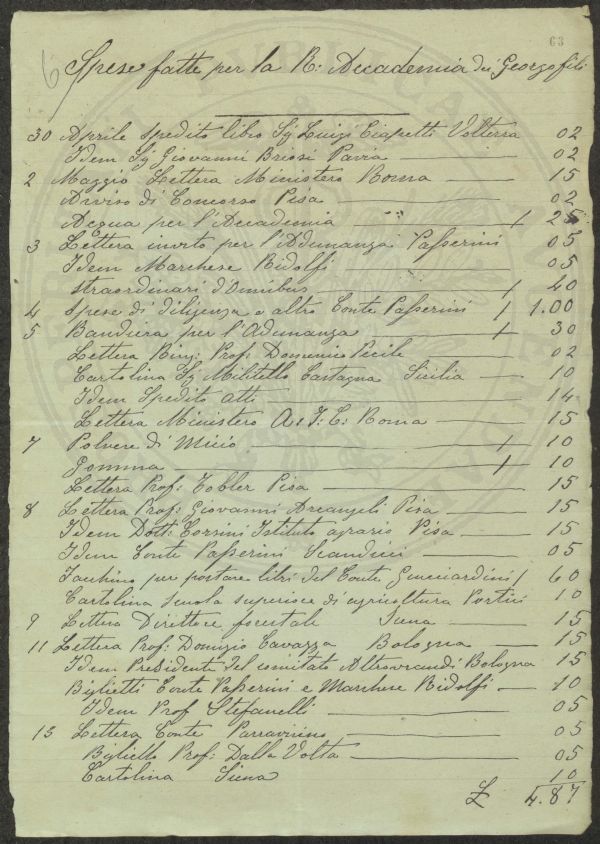 63
6 Spese fatte per la R: Accademia dei Georgofili
30 Aprile spedito libro Sg Luigi Ciapetti Volterra 02
Idem Sg Giovanni Briosi Pavia 02
2 Maggio Lettera Ministero Roma 15
Avviso di Concorso Pisa 02
Acqua per l'Accademia 25
3 Lettera invito per l'Adunanza Passerini 05
Idem Marchese Ridolfi 05
Straordinari d'Omnibus 40
4 Spese di diligenza e altro Conte Passerini 1.00
5 Bandiera per l'Adunanza 30
Lettera Ring: Prof: Domenico Pecile 02
Cartolina Sg Militello Castagna Sicilia 10
Idem Spedito atti 14
Lettera Ministero A: I: C: Roma 15
7 Polvere di Micio 10
Gomma 10
Lettera Prof: Tobler Pisa 15
8 Lettera Prof: Giovanni Arcangeli Pisa 15
Idem Dott: Corsini Istituto agrario Pisa 15
Idem Conte Passerini Scandicci 05
Facchino per portare libri del Conte Guicciardini 60
Cartolina scuola superiore di agricoltura Portici 10
9 Lettera Direttore forestale Siena 15
11 Lettera Prof: Domizio Cavazza Bologna 15
Idem Presidente del comitato Aldrovandi Bologna 15
Biglietti Conte Passerini e Marchese Ridolfi 10
Idem Prof Stefanelli 05
13 Lettera Conte Parravicino 05
Biglietto Prof: Dalla Volta 05
Cartolina Siena 10
£ 4.87